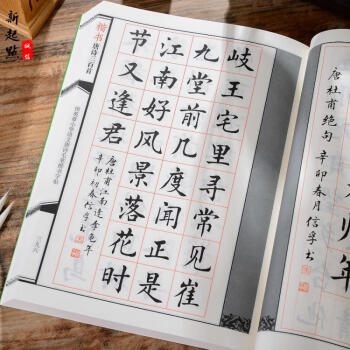 新起點
诚信
唐杜甫绝句 辛卯春月信孚书
归年
岐王宅里寻常见崔
九堂前几度闻正是
江南好风景落花时
节又逢君
唐杜甫江南逢李龟年
辛卯初春信孚书
楷书 唐诗三百首
一九六